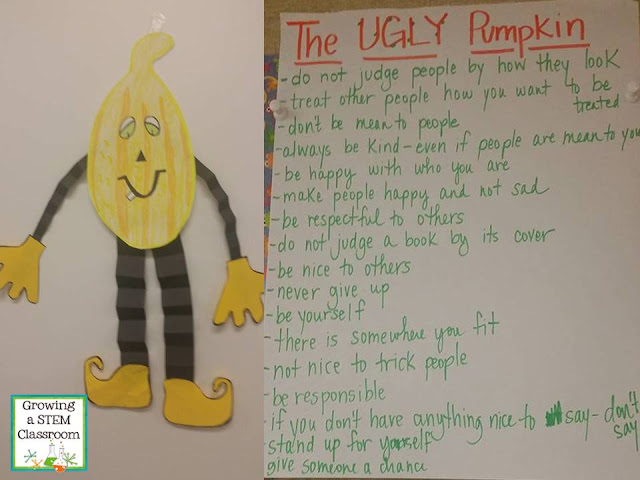 The UGLY Pumpkin
- do not judge people by how they look
- treat other people how you want to be
treated
- don't be mean to people
- always be kind - even if people are mean to you
- be happy with who you are
- make people happy and not sad
- be respectful to others
- do not judge a book by its cover
- be nice to others
- never give up
- be yourself
- there is somewhere you fit
- not nice to trick people
- be responsible
- if you don't have anything nice to say - don't
say
- stand up for yourself
- give someone a chance
Growing
a STEM
Classroom